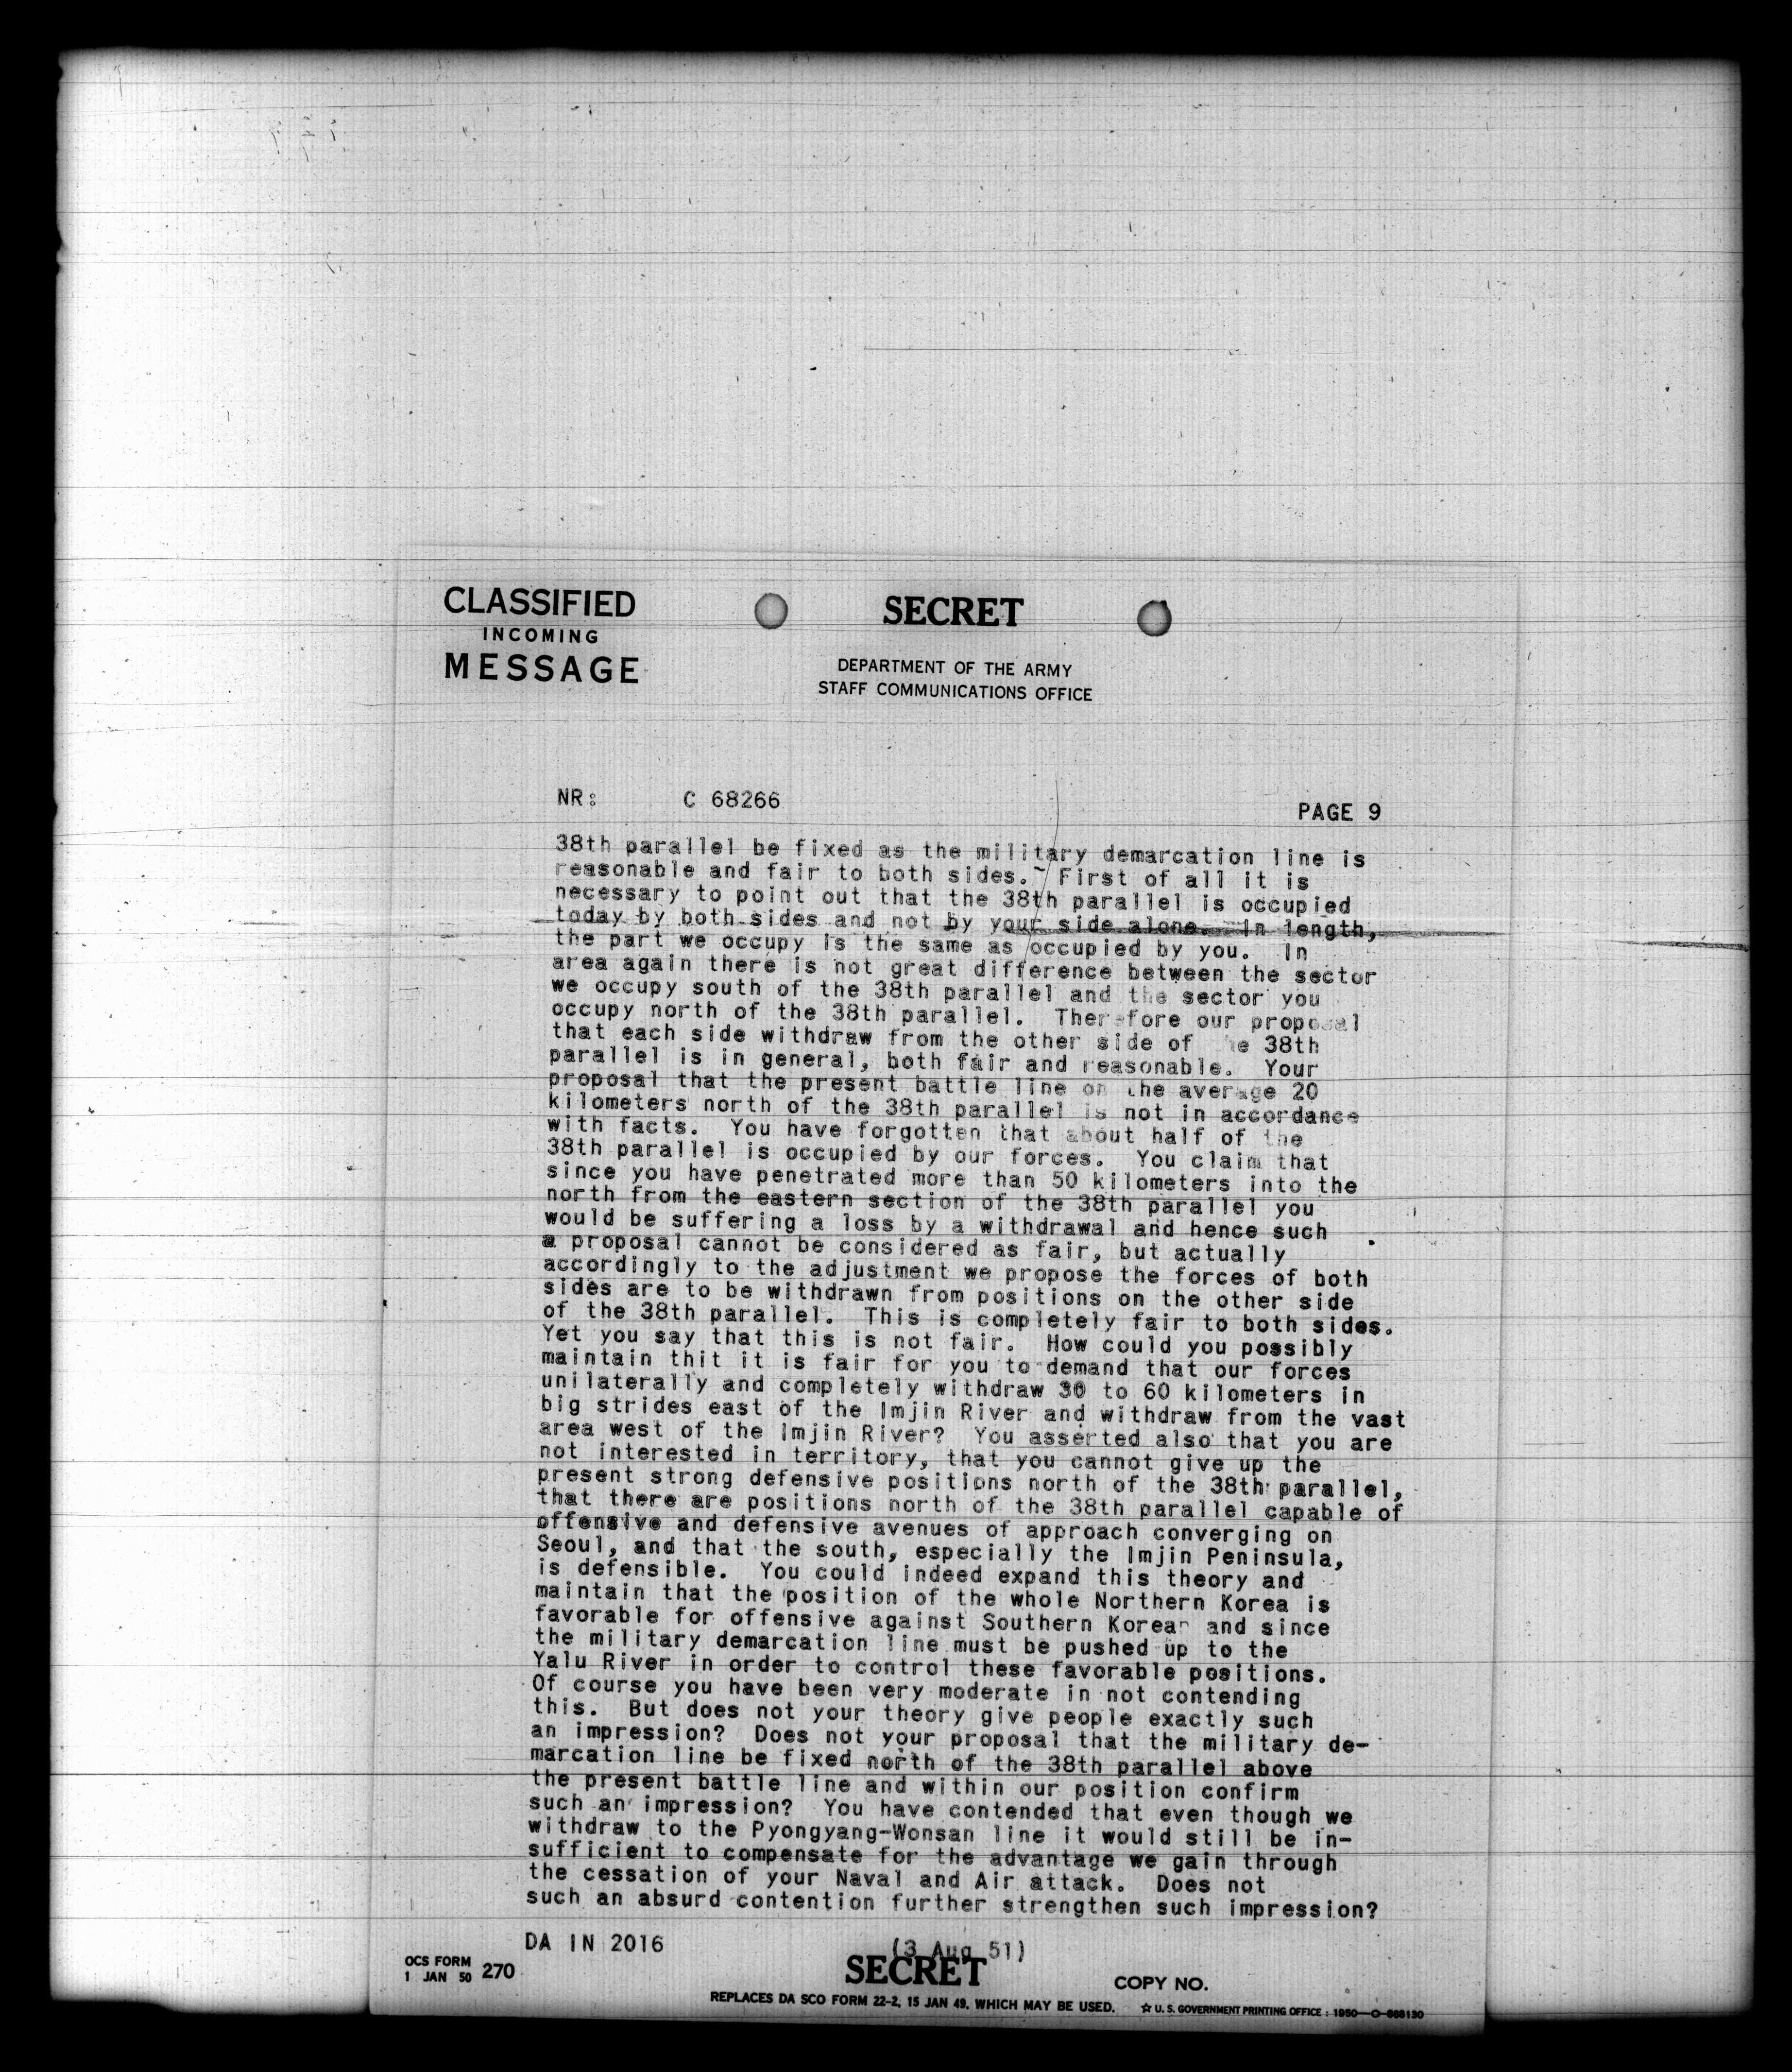 CLASSIFIED
INCOMING
MESSAGE
SECRET
DEPARTMENT OF THE ARMY
STAFF COMMUNICATIONS OFFICE
NR: C 68266
PAGE 9
38th parallel be fixed as the military demarcation line is
reasonable and fair to both sides. First of all it is
necessary to point out that the 38th parallel is occupied
today by both sides and not by your side alone. In length,
the part we occupy is the same as occupied by you. In
area again there is not great difference between the sector
we occupy south of the 38th parallel and the sector you
occupy north of the 38th parallel. Therefore our proposal
that each side withdraw from the other side of 38th
parallel is in general, both fair and reasonable. Your
proposal that the present battle line on the average 20
kilometers north of the 38th parallel is not in accordance
with facts. You have forgotten that about half of the
38th parallel is occupied by our forces. You claim that
since you have penetrated more than 50 kilometers into the
north from the eastern section of the 38th parallel you
would be suffering a loss by a withdrawal and hence such
a proposal cannot be considered as fair, but actually
accordingly to the adjustment we propose the forces of both
sides are to be withdrawn from positions on the other side
of the 38th parallel. This is completely fair to both sides.
Yet you say that this is not fair. How could you possibly
maintain thit it is fair for you to demand that our forces
unilaterally and completely withdraw 30 to 60 kilometers in
big strides east of the Imjin River and withdraw from the vast
area west of the Imjin River? You asserted also that you are
not interested in territory, that you cannot give up the
present strong defensive positions north of the 38th parallel,
that there are positions north of the 38th parallel capable of
offensive and defensive avenues of approach converging on
Seoul, and that the south, especially the Imjin Peninsula,
is defensible. You could indeed expand this theory and
maintain that the position of the whole Northern Korea is
favorable for offensive against Southern Korean and since
the military demarcation line must be pushed up to the
Yalu River in order to control these favorable positions.
Of course you have been very moderate in not contending
this. But does not your theory give people exactly such
an impression? Does not your proposal that the military de-
marcation line be fixed north of the 38th parallel above
the present battle line and within our position confirm
such an impression? You have contended that even though we
withdraw to the Pyongyang-Wonsan line it would still be in-
sufficient to compensate for the advantage we gain through
the cessation of your Naval and Air attack. Does not
such an absurd contention further strengthen such impression?
DA IN 2016 (3 Aug 51)
OCS FORM
1 JAN 50 270
SECRET
COPY NO.
REPLACES DA SCO FORM 22-2, 15 JAN 49, WHICH MAY BE USED. ☆ U. S. GOVERNMENT PRINTING OFFICE : 1950—O